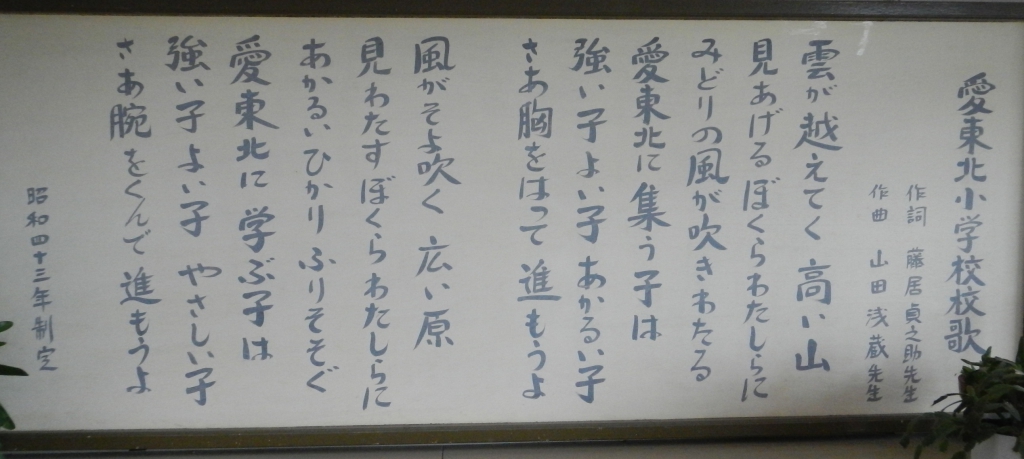 愛東北小学校校歌
作詞 藤居貞之助先生
作曲 山田浅蔵先生
雲が越えてく 高い山
見あげるぼくらわたしらに
みどりの風が吹きわたる
愛東北に 集う子は
強い子よい子 あかるい子
さあ胸をはって 進もうよ
風がそよ吹く 広い原
見わたすぼくら わたしらに
あかるいひかり ふりそそぐ
愛東北に 学ぶ子は
強い子よい子 やさしい子
さあ腕をくんで 進もうよ
昭和四十三年制定